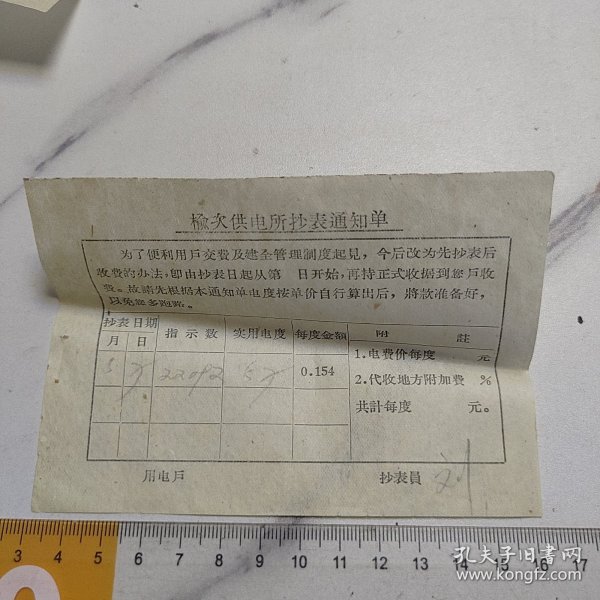 榆次供电所抄表通知单
为了便利用戶交費及建全管理制度起見，今后改为先抄表后
收費的办法，即由抄表日起从第 日开始，再持正式收据到您戶收
費。故請先根据本通知单电度按单价自行算出后，將款准备好，
以免您多跑路。
抄表日期 指示数 实用电度 每度金額 附 註
月 日
5 0.154
1.电費价每度 元
2.代收地方附加費 %
共計每度 元。
用电戶 抄表員 刘
3 4 5 6 7 8 9 10 11 12 13 14 15 16 17
孔夫子旧書网
www.kongfz.com